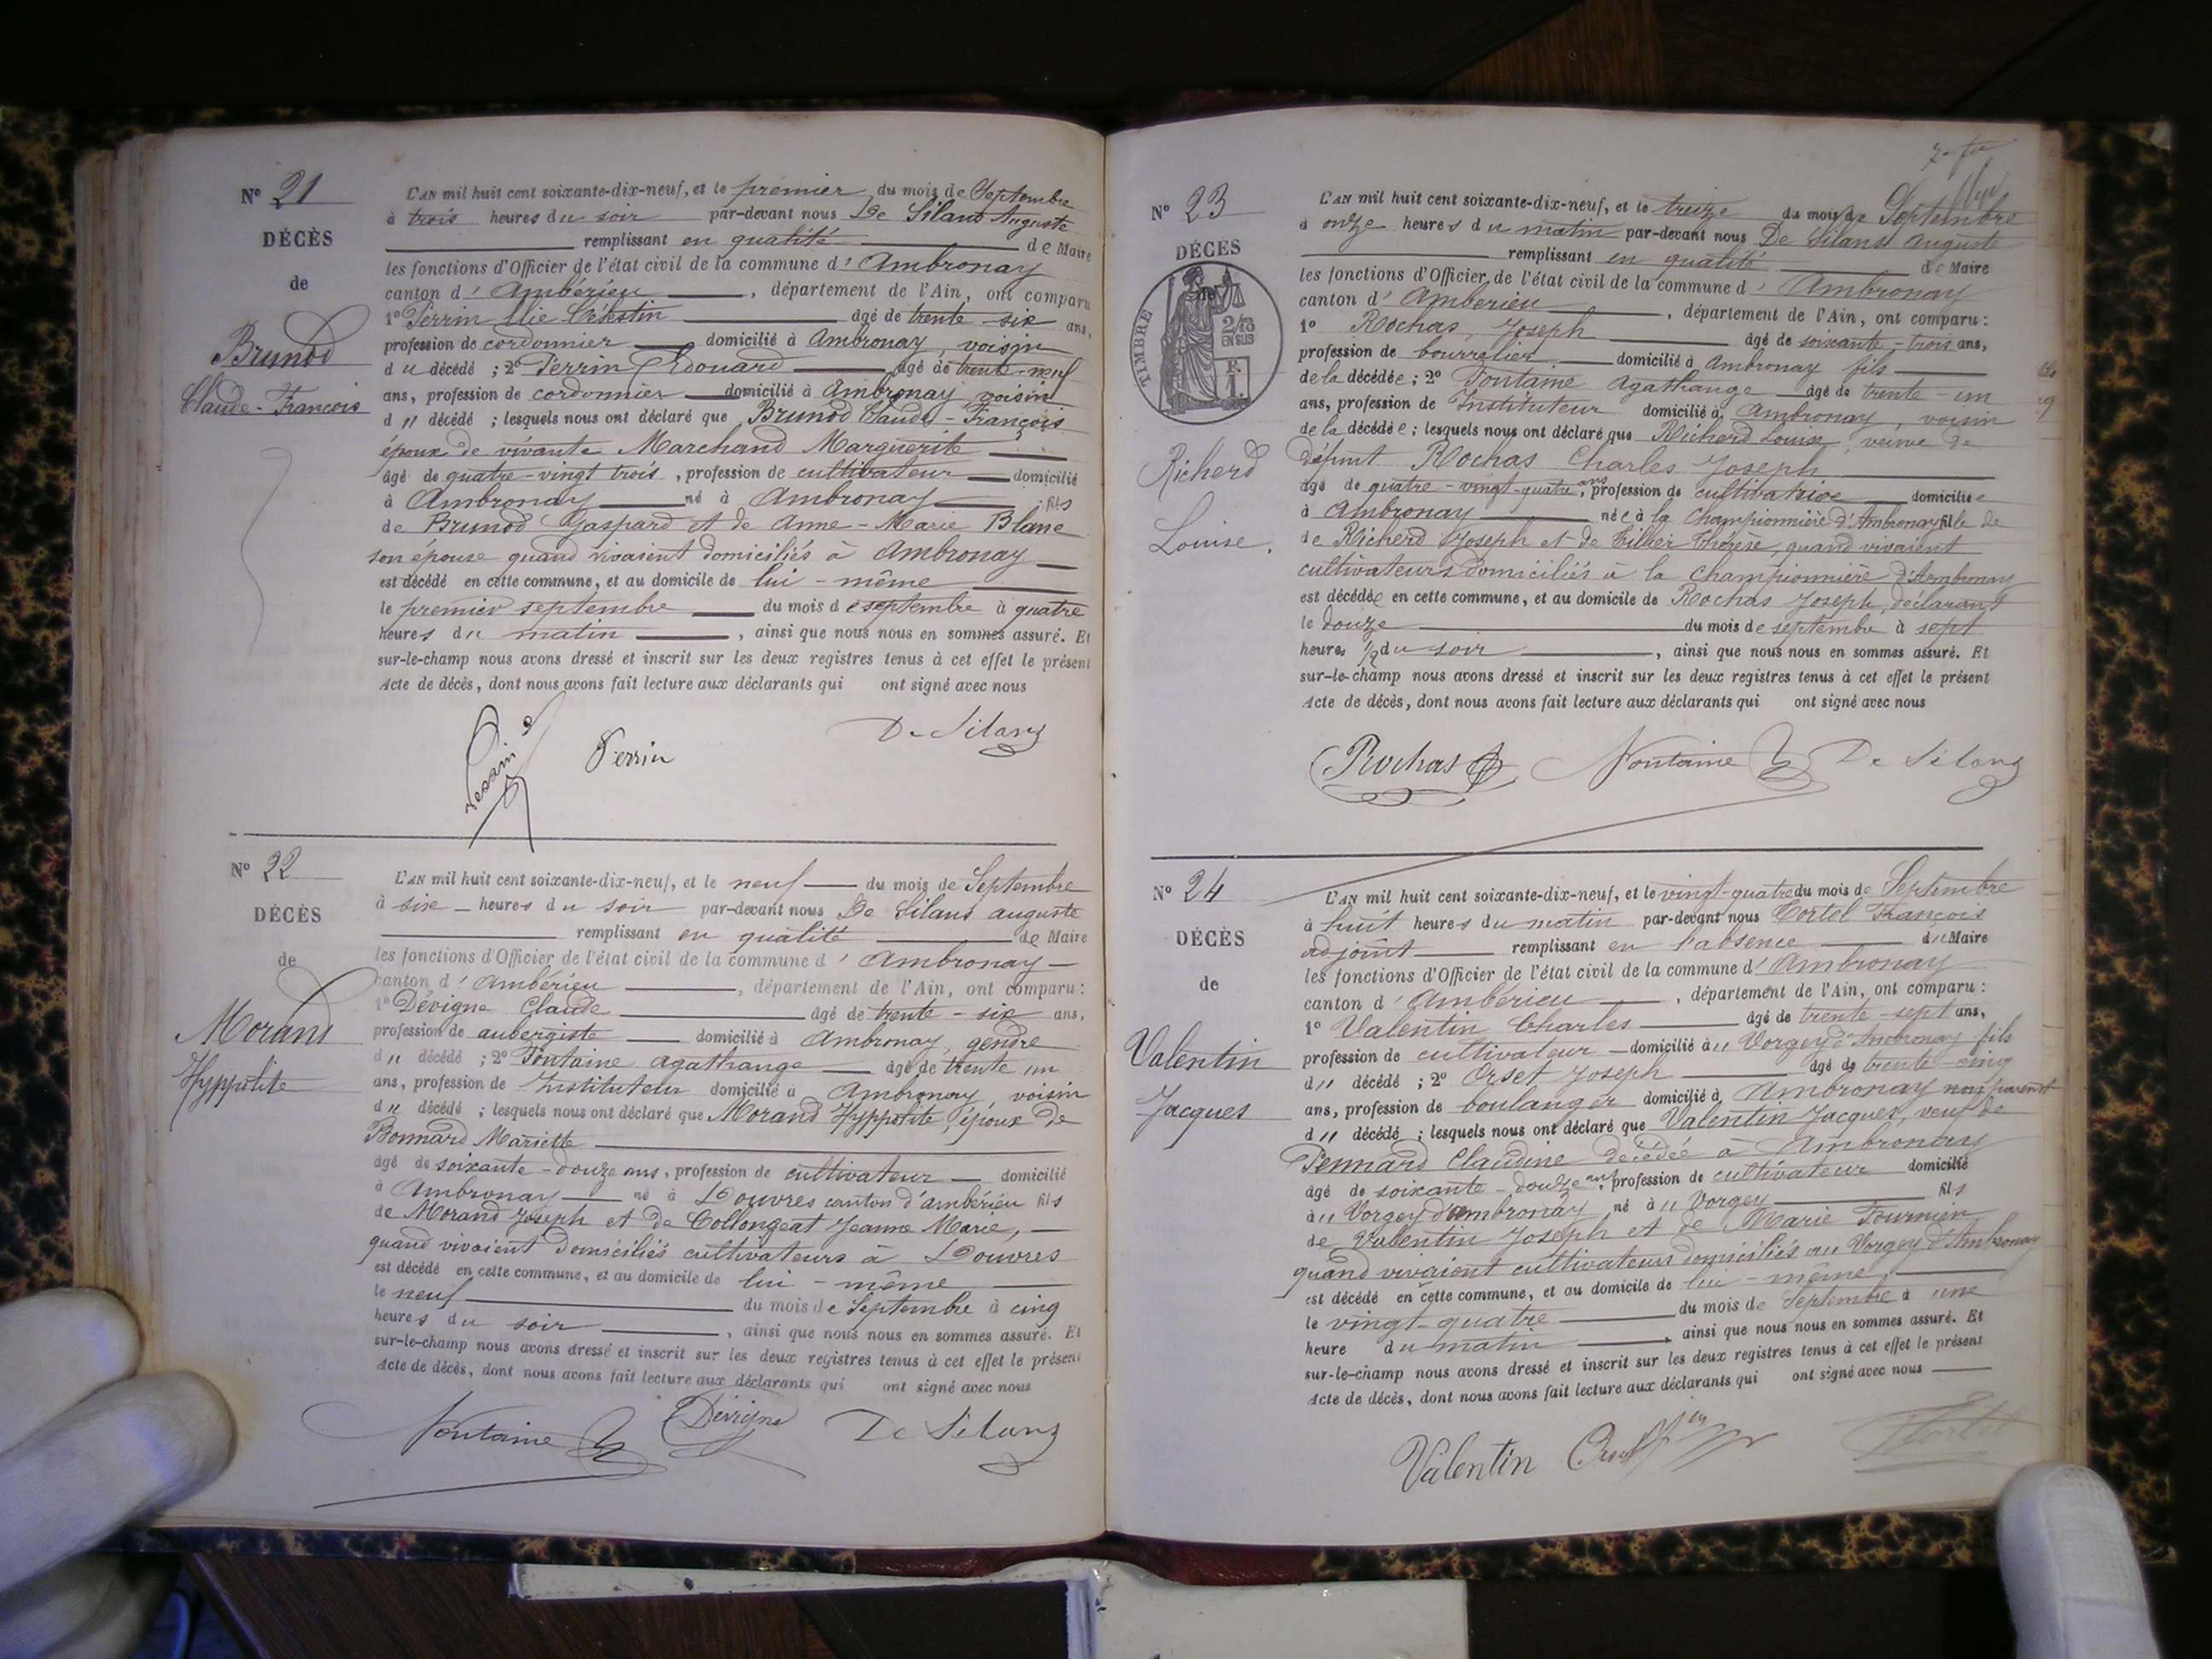 N° 21
DÉCÈS
de
Brunod
Claude-François
L'AN mil huit cent soixante-dix-neuf, et le premier du mois de Septembre
à trois heures du soir par-devant nous De Silans Auguste
remplissant en qualité de Maire
les fonctions d'Officier de l'état civil de la commune d' Ambronay
canton d' Ambérieu, département de l'Ain, ont comparu
1° Perrin Elie Célestin âgé de trente-six ans,
profession de cordonnier domicilié à Ambronay, voisin
du décédé ; 2° Perrin Edouard âgé de trente-neuf
ans, profession de cordonnier domicilié à Ambronay voisin
d u décédé ; lesquels nous ont déclaré que Brunod Claude-François
époux de vivante Marchand Marguerite
âgé de quatre-vingt trois, profession de cultivateur domicilié
à Ambronay né à Ambronay fils
de Brunod Gaspard et de Anne-Marie Blanc
son épouse quand vivaient domiciliés à Ambronay
est décédé en cette commune, et au domicile de lui-même
le premier septembre du mois de septembre à quatre
heures du matin, ainsi que nous nous en sommes assuré. Et
sur-le-champ nous avons dressé et inscrit sur les deux registres tenus à cet effet le présent
Acte de décès, dont nous avons fait lecture aux déclarants qui ont signé avec nous
Perrin Perrin De Silans
N° 22
DÉCÈS
de
Morand
Hyppolite
L'AN mil huit cent soixante-dix-neuf, et le neuf du mois de Septembre
à six heures du soir par-devant nous De Silans auguste
remplissant en qualité de Maire
les fonctions d'Officier de l'état civil de la commune d' Ambronay
canton d' Ambérieu, département de l'Ain, ont comparu :
1° Dévigne Claude âgé de trente-six ans,
profession de aubergiste domicilié à Ambronay, gendre
du décédé ; 2° Fontaine agathange âgé de trente un
ans, profession de Instituteur domicilié à Ambronay, voisin
du décédé ; lesquels nous ont déclaré que Morand Hyppolite, époux de
Bonnard Mariette
âgé de soixante-douze ans, profession de cultivateur domicilié
à Ambronay né à Douvres canton d'ambérieu fils
de Morand Joseph et de Collongeat Jeanne Marie,
quand vivaient domiciliés cultivateurs à Douvres
est décédé en cette commune, et au domicile de lui-même
le neuf du mois de Septembre à cinq
heures du soir, ainsi que nous nous en sommes assuré. Et
sur-le-champ nous avons dressé et inscrit sur les deux registres tenus à cet effet le présent
Acte de décès, dont nous avons fait lecture aux déclarants qui ont signé avec nous
Fontaine Dévigne De Silans
N° 23
DÉCÈS
de
TIMBRE
2/13
EN SUS
Richerd
Louise.
L'AN mil huit cent soixante-dix-neuf, et le treize du mois de Septembre
à onze heures du matin par-devant nous De Silans auguste
remplissant en qualité de Maire
les fonctions d'Officier de l'état civil de la commune d' Ambronay
canton d' Amberieu, département de l'Ain, ont comparu :
1° Rochas Joseph âgé de soixante-trois ans,
profession de bourrelier domicilié à Ambronay fils
de la décédée ; 2° Fontaine Agathange âgé de trente-un
ans, profession de Instituteur domicilié à Ambronay, voisin
de la décédée ; lesquels nous ont déclaré que Richerd Louise, veuve de
défunt Rochas Charles Joseph
âgé de quatre-vingt-quatre ans, profession de cultivatrice domiciliée
à Ambronay née à la Championnière d'Ambronay fille de
de Richerd Joseph et de Tillier Thérèse, quand vivaient
cultivateurs domiciliés à la Championnière d'Ambronay
est décédée en cette commune, et au domicile de Rochas Joseph, déclarant
le douze du mois de septembre à sept
heures 1/2 du soir, ainsi que nous nous en sommes assuré. Et
sur-le-champ nous avons dressé et inscrit sur les deux registres tenus à cet effet le présent
Acte de décès, dont nous avons fait lecture aux déclarants qui ont signé avec nous
Rochas Fontaine De Silans
N° 24
DÉCÈS
de
Valentin
Jacques
L'AN mil huit cent soixante-dix-neuf, et le vingt-quatre du mois de Septembre
à huit heures du matin par-devant nous Tortel François
adjoint remplissant en l'absence du Maire
les fonctions d'Officier de l'état civil de la commune d' Ambronay
canton d' Ambérieu, département de l'Ain, ont comparu :
1° Valentin Charles âgé de trente-sept ans,
profession de cultivateur domicilié au Vorgey d'Ambronay fils
du décédé ; 2° Orset Joseph âgé de trente-cinq
ans, profession de boulanger domicilié à Ambronay non parent
du décédé ; lesquels nous ont déclaré que Valentin Jacques, veuf de
Pennard Claudine décédée à Ambronay
âgé de soixante-douze ans, profession de cultivateur domicilié
au Vorgey d'ambronay, né au Vorgey fils
de Valentin Joseph et de Marie Fournier
quand vivaient cultivateurs domiciliés au Vorgey d'Ambronay
est décédé en cette commune, et au domicile de lui-même,
le vingt-quatre du mois de Septembre à une
heure du matin, ainsi que nous nous en sommes assuré. Et
sur-le-champ nous avons dressé et inscrit sur les deux registres tenus à cet effet le présent
Acte de décès, dont nous avons fait lecture aux déclarants qui ont signé avec nous
Valentin Orset Tortel